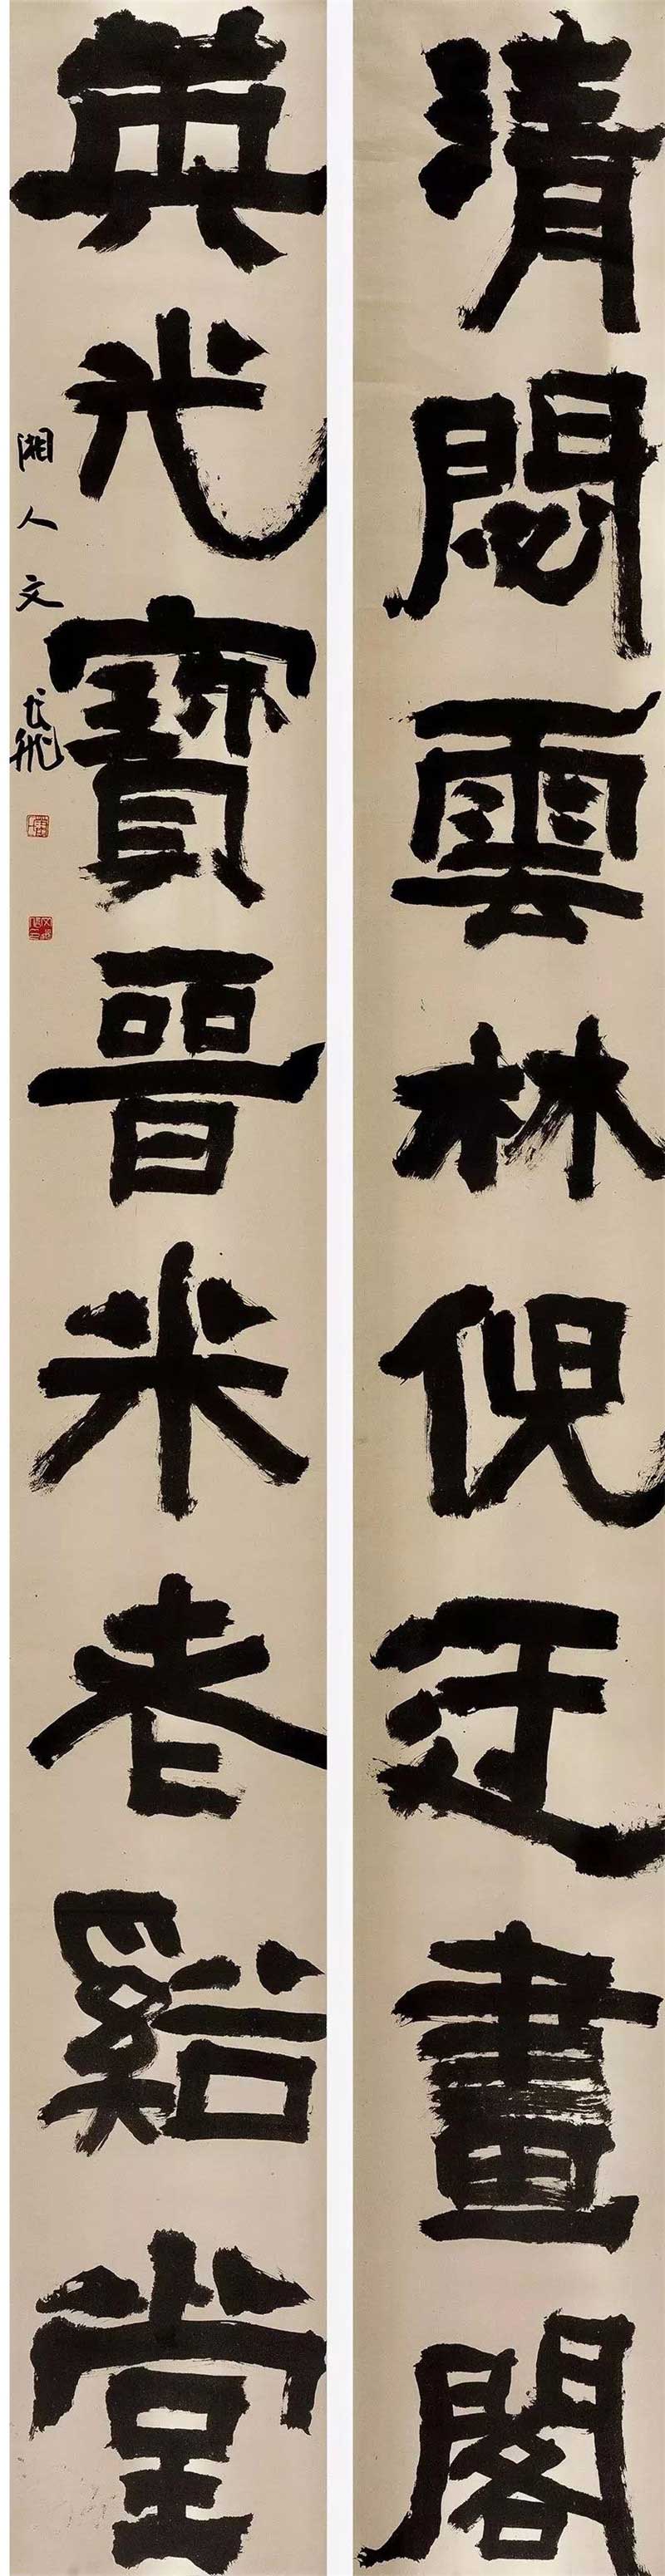 清閟雲林倪迂畫閣
英光寶晉米老谿堂
湘人文飛